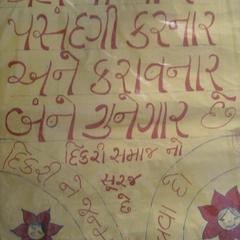 પસંદગી કરનાર
અને કરાવનાર
બંને ગુનેગાર છે
દિકરી સમાજ નો
સૂરજ
છે
દિકરી ને જન્મ